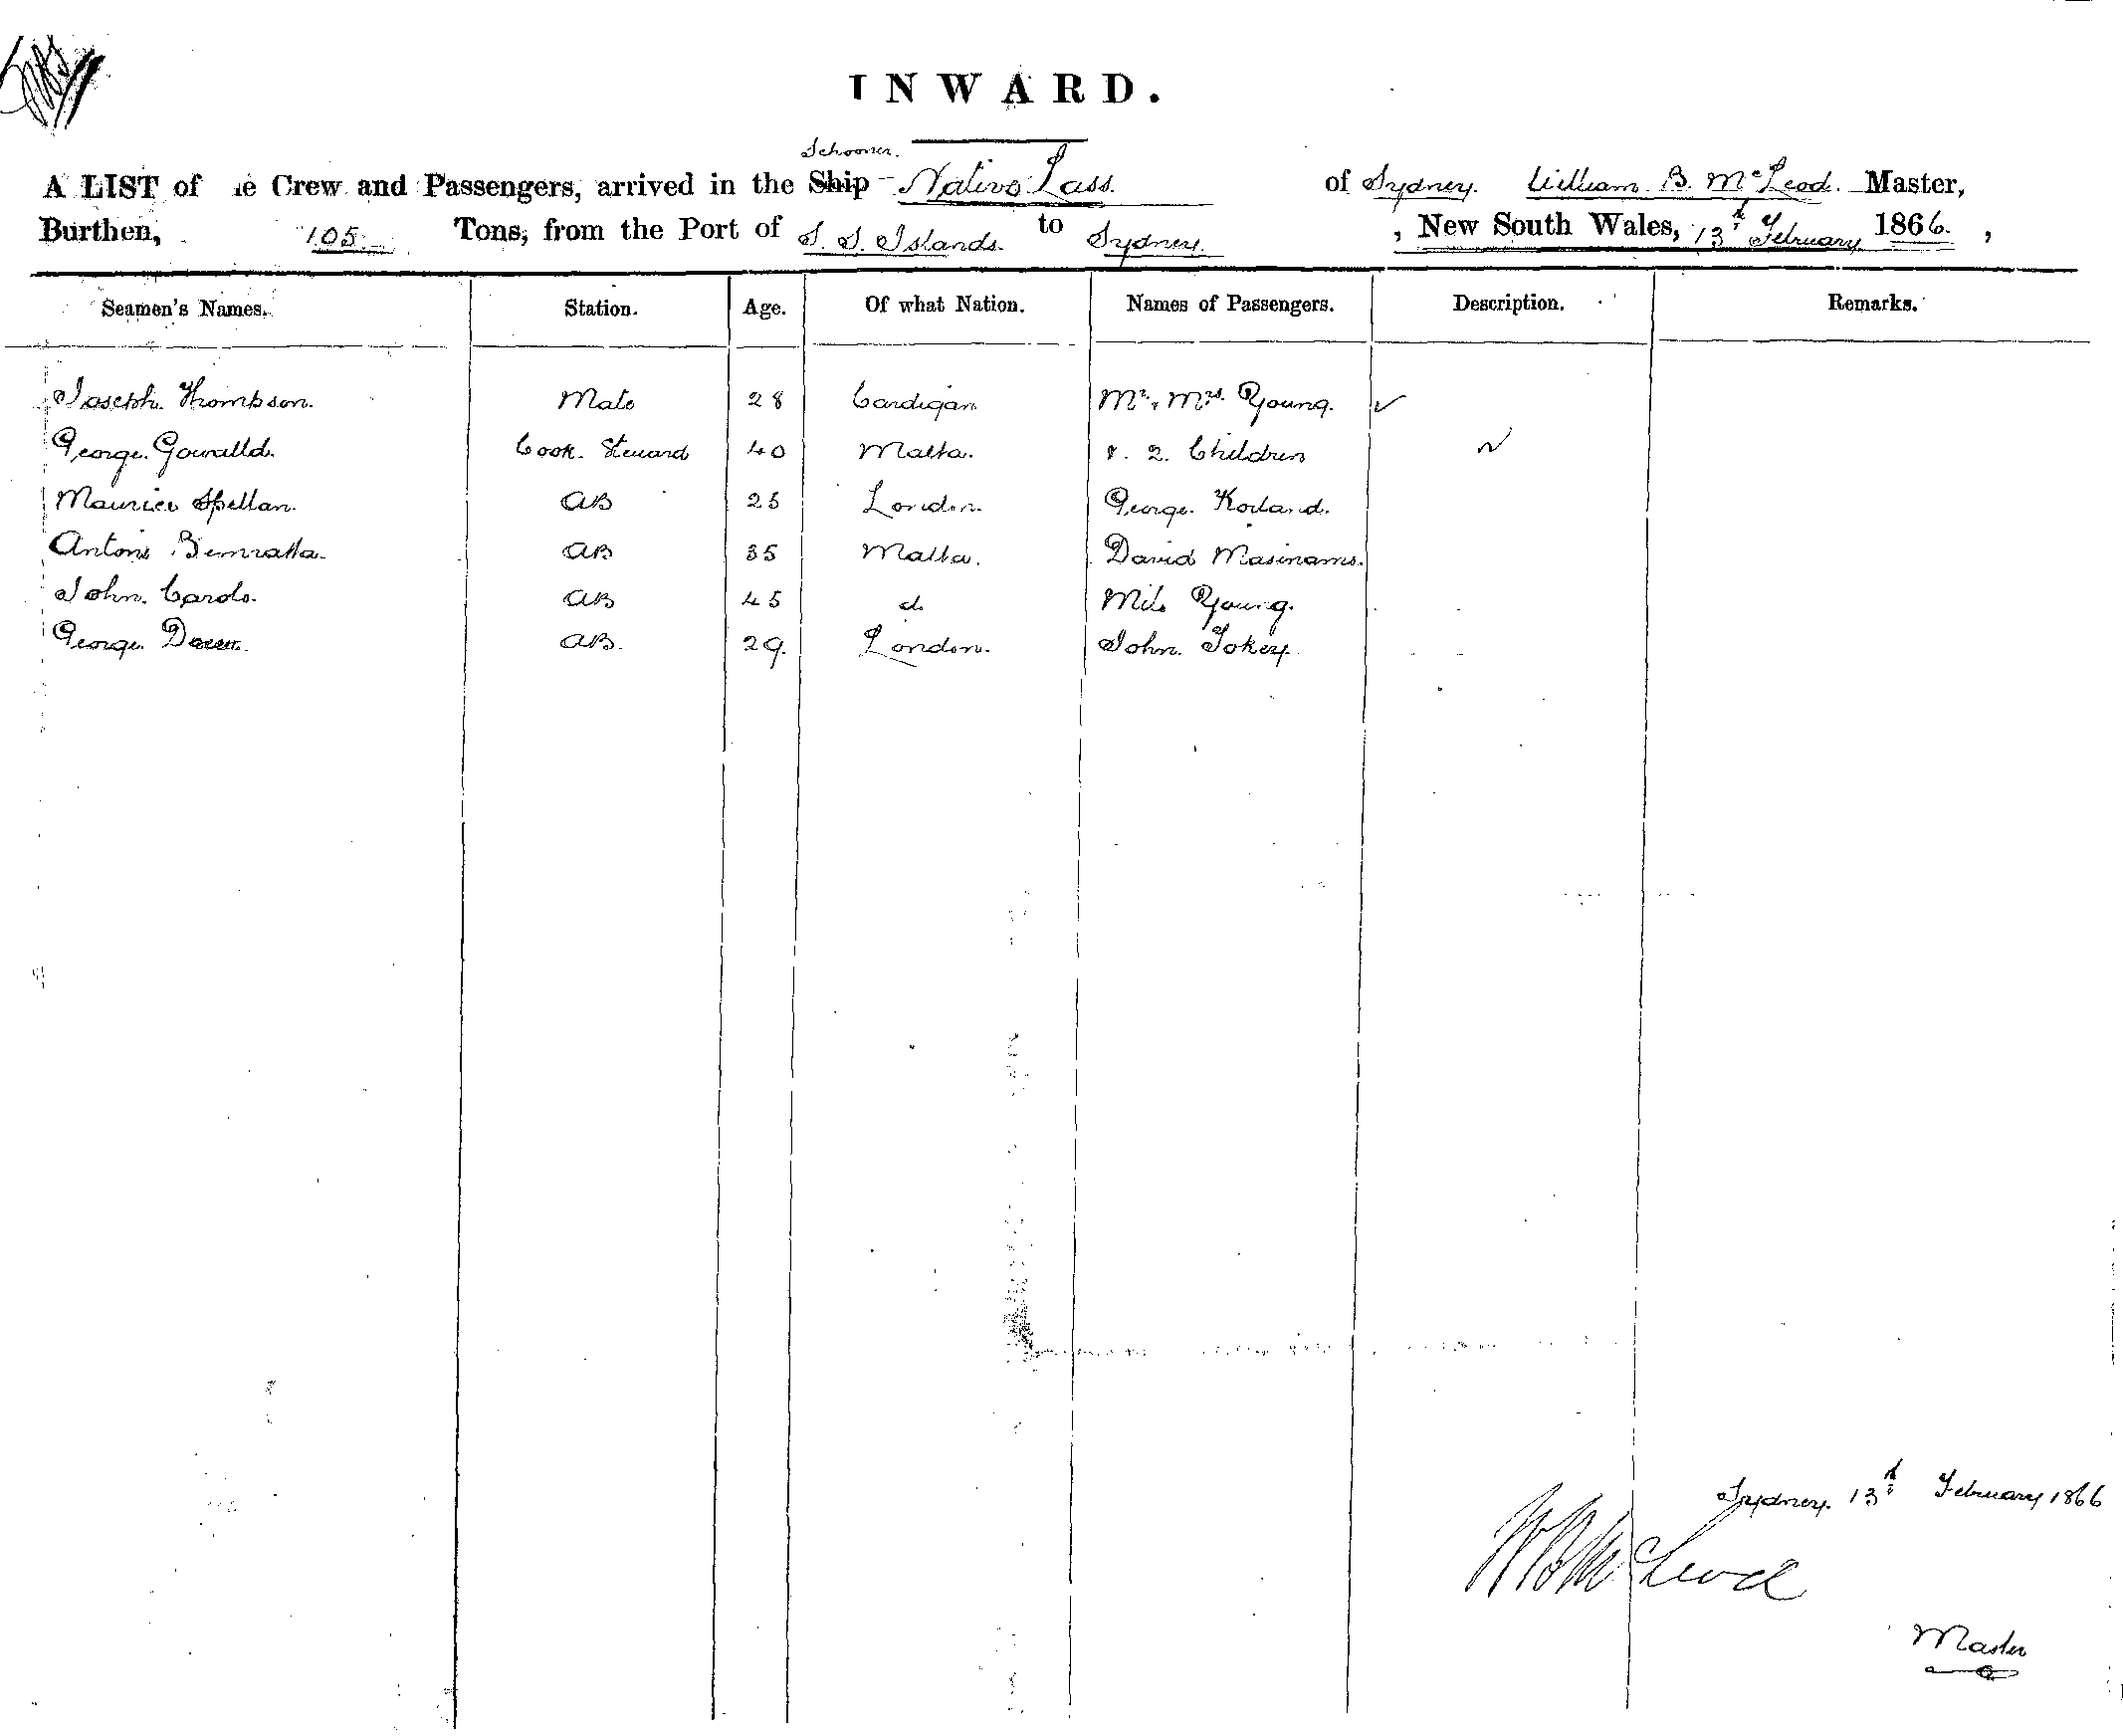 INWARD.
Schooner.
A LIST of ie Crew and Passengers, arrived in the Ship Native Lass. of Sydney. William B. McLeod. Master,
Burthen, 105 Tons, from the Port of S. S. Islands. to Sydney. , New South Wales, 13th February 1866. ,
Seamen's Names. Station. Age. Of what Nation. Names of Passengers. Description. Remarks.
Joseph. Thompson. Mate 28 Cardigan Mr. Mrs. Young.
George. Cook. Steward 40 Malta. & 2. Children
Maurice Spellan. AB 25 London. George.
Antonio AB 35 Malta. David
John. AB 45 do Young.
George AB. 29. London. John. Tokey.
Sydney. 13th February 1866
W B McLeod
Master